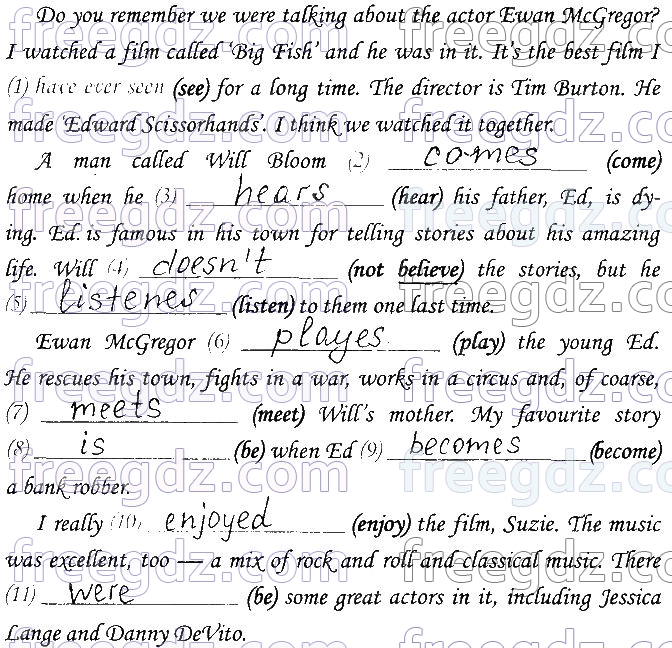 Do you remember we were talking about the actor Ewan McGregor?
I watched a film called 'Big Fish' and he was in it. It's the best film I
(1) have ever seen (see) for a long time. The director is Tim Burton. He
made 'Edward Scissorhands'. I think we watched it together.
A man called Will Bloom (2) comes (come)
home when he (3) hears (hear) his father, Ed, is dy-
ing. Ed is famous in his town for telling stories about his amazing
life. Will (4) doesn't (not believe) the stories, but he
(5) listenes (listen) to them one last time.
Ewan McGregor (6) playes (play) the young Ed.
He rescues his town, fights in a war, works in a circus and, of coarse,
(7) meets (meet) Will's mother. My favourite story
(8) is (be) when Ed (9) becomes (become)
a bank robber.
I really (10) enjoyed (enjoy) the film, Suzie. The music
was excellent, too — a mix of rock and roll and classical music. There
(11) were (be) some great actors in it, including Jessica
Lange and Danny DeVito.
freegdz.com